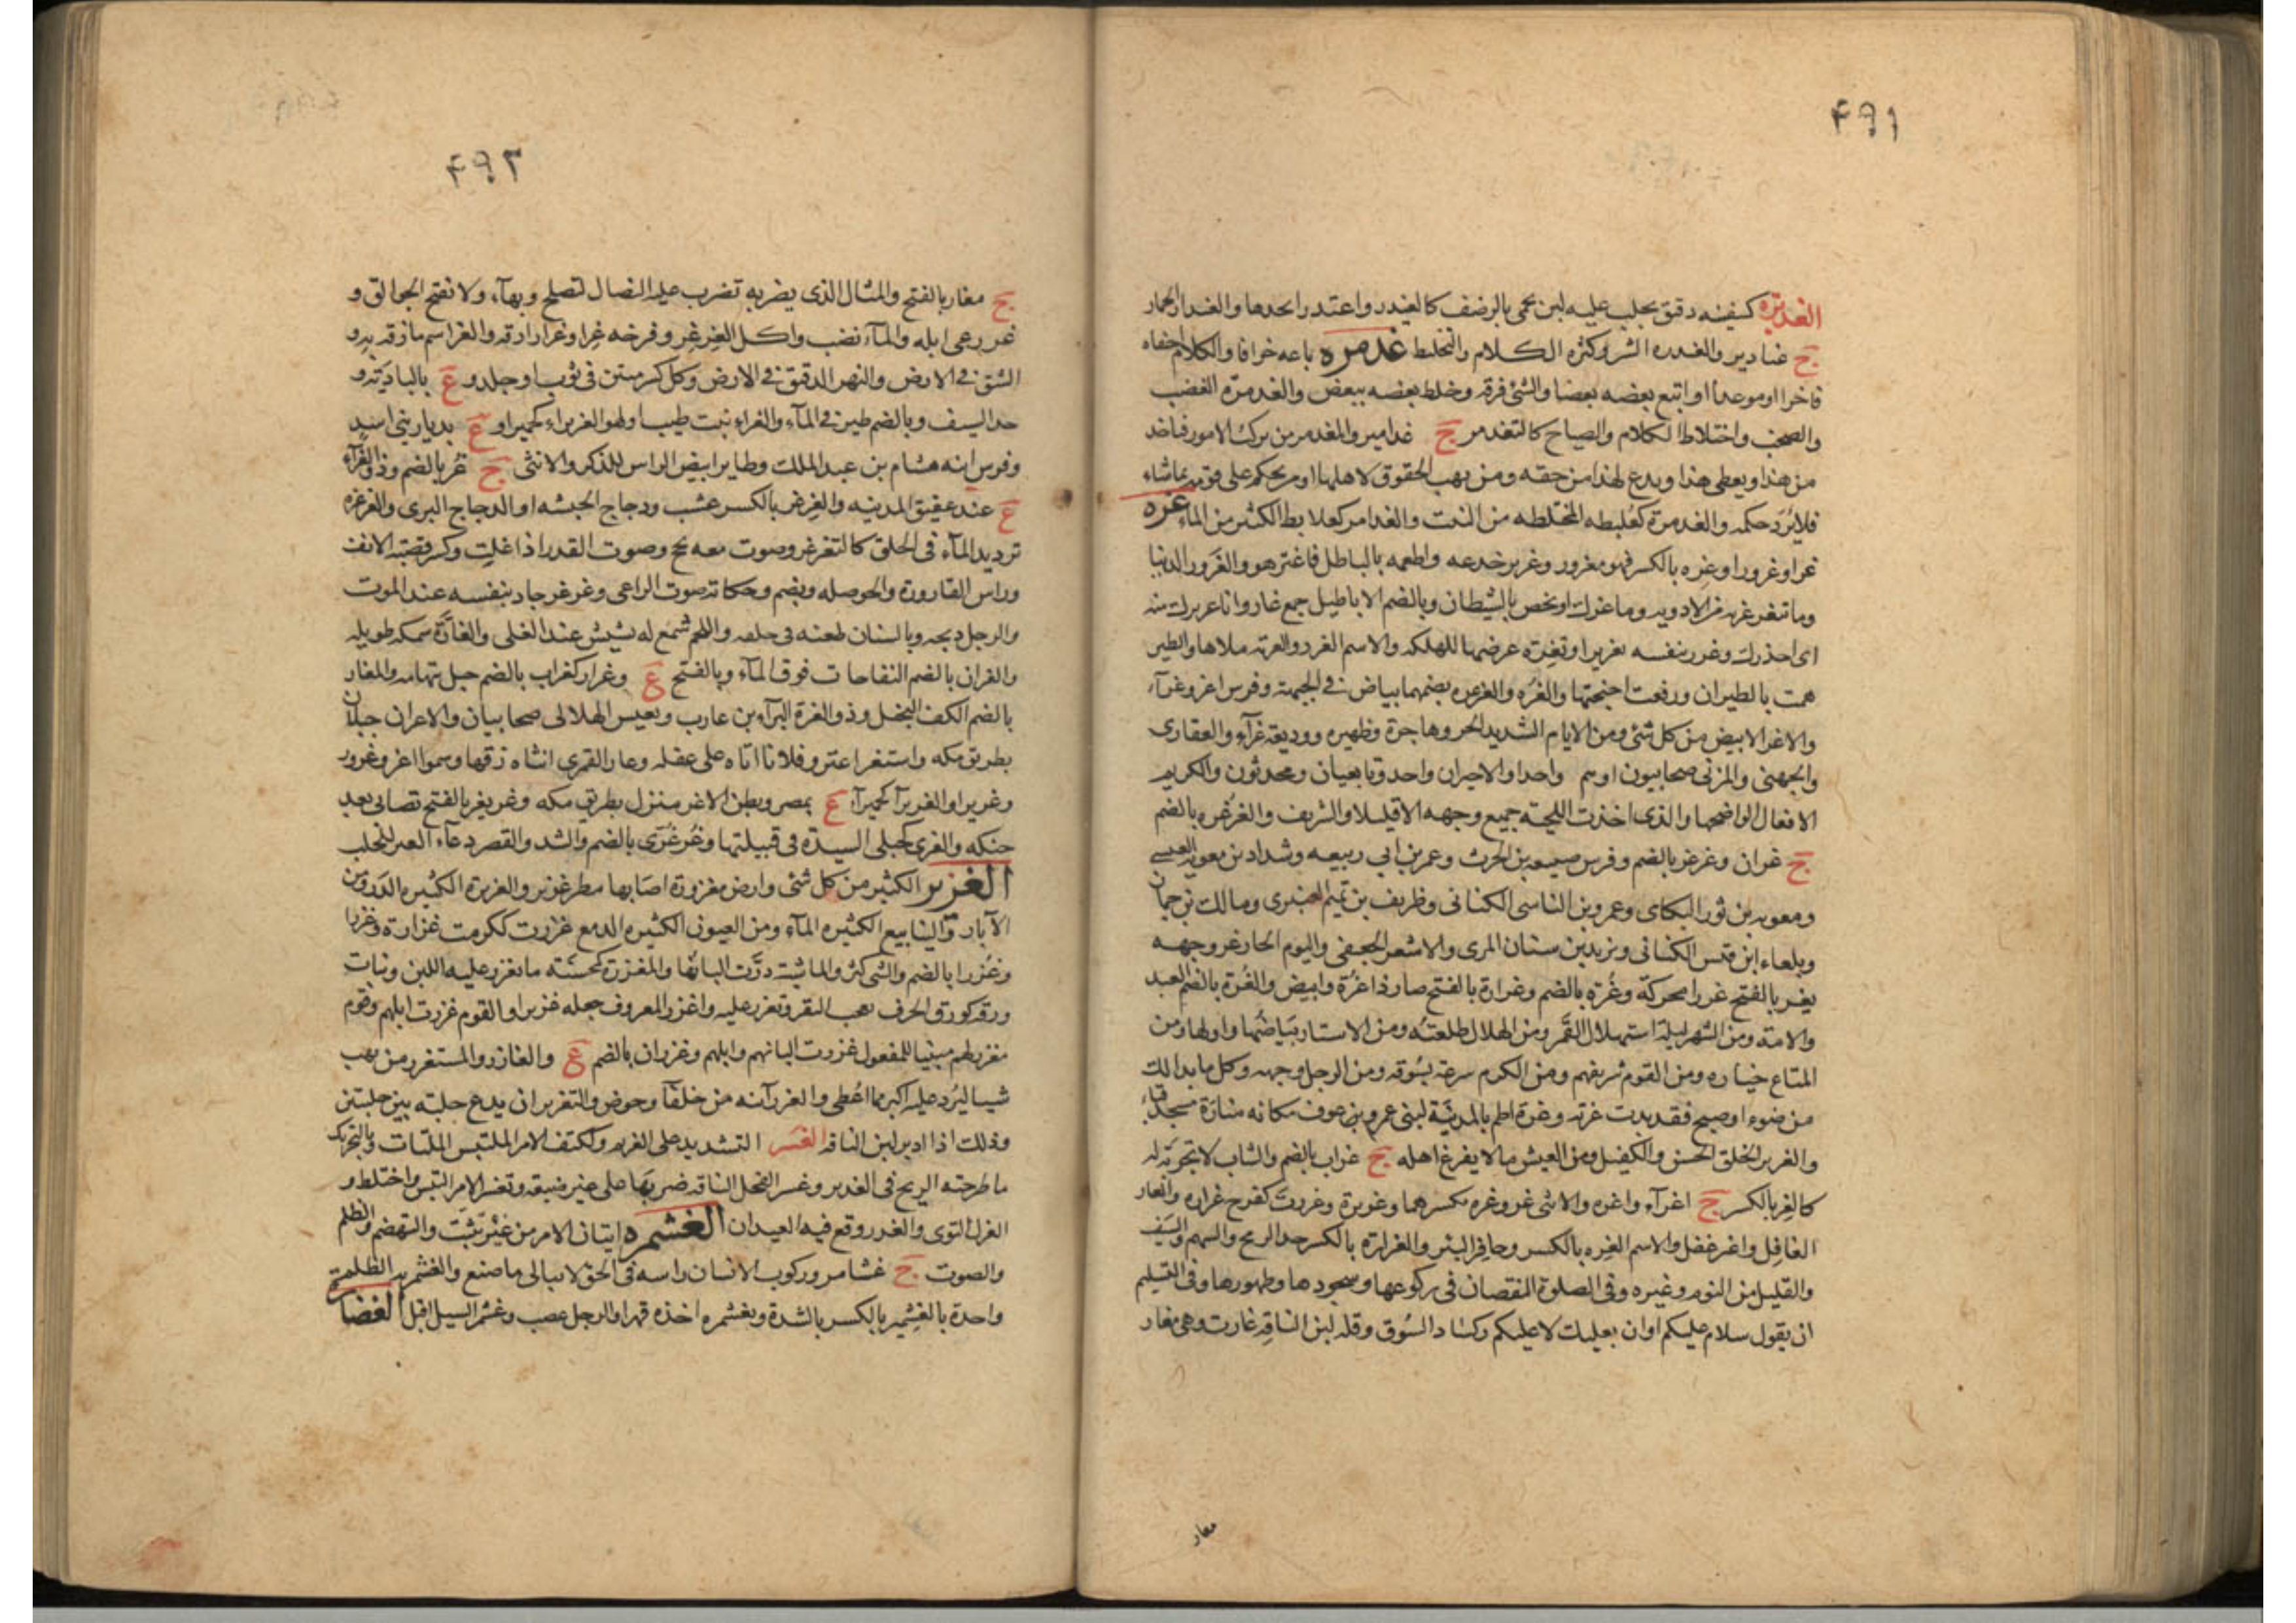 ۴۹۱
الغذيرة كسفينه دقيق يحلب عليه لبن يحمى بالرضف كالغيذر واغتذر اتخذها والغيذار الحمار
ج غياذير والغيذره الشر وكثرة الكلام والتخليط غذمره باعه جزافا والكلام اخفاه
فاخرا اوموعدا او اتبع بعضه بعضا والشئ فرقه وخلط بعضه ببعض والغذمرة الغضب
والصخب واختلاط الكلام والصياح كالتغذمر ج غذامير والمغذمر من يركب الامور فياخذ
من هذا ويعطى هذا ويدع لهذا من حقه ومن يهب الحقوق لاهلها او يحكم على قومه بماشاء
فلا يُرَد حكمه والغذمرة كعُلبطه المختلطه من النبت والغذامر كعلابط الكثير من الماء غره
غرا وغرورا وغِره بالكسر فهو مغرور وغرير خدعه واطعمه بالباطل فاغتر هو والغَرور الدنيا
وما تتغرغر به من الادويه وما غرك او يخص بالشيطان وبالضم الاباطيل جمع غار وانا غريرك منه
اى احذرك وغرر بنفسه تغريرا وتغِرة عرضها للهلكه والاسم الغرر والقربه ملاها والطير
همت بالطيران ورفعت اجنحتها والغُره والغرغره بضمهما بياض فى الجبهة وفرس اغر وغرآء
والاغر الابيض من كل شئ ومن الايام الشديد الحر وهاجرة وظهيره ووديقة غرآء والغفارى
والجهنى والمزنى صحابيون اوهم واحد او الاخيران واحد وتابعيان ومحدثون والكريم
الافعال الواضحها والذى اخذت اللحية جميع وجهه الا قليلا والشريف والغُرغره بالضم
ج غران وغرغر بالضم وفرس ضبيعه بن الحرث وعمر بن ابي ربيعه وشداد بن معويه العبسى
ومعويه بن ثور البكاى وعمرو بن الناسى الكنانى وظريف بن تميم العنبرى ومالك بن حمان
وبلعاء ابن قيس الكنانى ويزيد بن سنان المرى والاسعر الجعفى واليوم الحار غر وجهه
يغر بالفتح غررا محركة وغُرّه بالضم وغرارة بالفتح صار ذا غُرّة وابيض والغُرة بالضم العبد
والامة ومن الشهر ليلة استهلال القمر ومن الهلال طلعته ومن الاسنان بياضها واولها ومن
المتاع خياره ومن القوم شريفهم ومن الكرم سرعة بسُوقه ومن الرجل وجهه وكل ما بدا لك
من ضوء او صبح فقد بدت غرته وغرة اطم بالمدينة لبنى عمرو بن عوف مكانه منارة مسجد قباء
والغرير الخلق الحسن والكفيل ومن العيش ما لا يفزع اهله ج غران بالضم والشاب لا تجربة له
كالغِر بالكسر ج اغرآء واغره والانثى غر وغره بكسرهما وغريرة وغررت كفرح غراره والغار
الغافل واغتر غفل والاسم الغِره بالكسر وحافر البئر والغرارة بالكسر حد الرمح والسهم والسيف
والقليل من النوم وغيره وفى الصلوة النقصان فى ركوعها وسجودها وطهورها وفى التسليم
ان يقول سلام عليكم او ان بعليك لا عليكم وكساد السوق وقله لبن الناقه غارت وهى مغار
مغار
۴۹۲
ج مغار بالفتح والمثال الذى يضرب عليه النصال لتصلح وبهآء ولا تفتح الجوالق و
غرر رعى ابله والمآء نضب واكل الغِرغِر وفرخه غِرا وغرارا زقه والغر اسم ما زقه به و
الشق فى الارض والنهر الدقيق فى الارض وكل كسر متثن فى ثوب او جلد و ع بالباديَة و
حد السيف وبالضم طير فى المآء والغراء نبت طيب او هو الغريراء كحميراو ع بديار بنى اسد
وفرس ابنه هشام بن عبد الملك وطاير ابيض الراس للذكر والانثى ج غُر بالضم وذو الغرآء
ع عند عقيق المدينه والغِرغر بالكسر عشب ودجاج الحبشه او الدجاج البرى والغرغره
ترديد المآء فى الحلق كالتغرغر وصوت معه بحح وصوت القدر اذا غلت وكسر قصبة الانف
وراس القارورة والحوصله ويضم وحكاية صوت الراعى وغرغر جاد بنفسه عند الموت
والرجل ذبحه وبالسنان طعنه فى حلقه واللحم سُمع له نشيش عند الغلى والغارَّة سمكه طويله
والغران بالضم النفاخات فوق المآء وبالفتح ع وغرار كغراب بالضم جبل بتهامه والمغار
بالضم الكف البخيل وذو الغرة البرآء بن عازب ويعيش الهلالى صحابيان والاغران جبلان
بطريق مكه واستغر اغتر وفلانا اتاه على غفله وغار القمرى انثاه زقها وسموا اغر وغرور
وغريرا والغريرآ كحميرآء ع بمصر وبطن الاغر منزل بطريق مكه وغر يغر بالفتح تصابى بعد
حنكه والغرى كحبلى السيدة فى قبيلتها وغُرغُرَى بالضم والشد والقصر دعآء العنز للحلب
الغزير الكثير من كل شئ وارض مغزورة اصابها مطر غزير والغزيرة الكثيره الدَر ومن
الآبار والينابيع الكثيره المآء ومن العيون الكثيره الدمع غزرت ككرمت غزارة وغزرا
وغُزرا بالضم والشى كثر والماشية درَّت البانها والمغزرة كمحسنه ما يغزر عليه اللبن ونبات
ورقه كورق الحرف يعجب البقر وتغزر عليه واغزر المعروف جعله غزيرا والقوم غزرت ابلهم وقوم
مغزرلهم مبنيا للمفعول غزرت البانهم وابلهم وغزران بالضم ع والغازر والمستغزر من يهب
شيا ليُرد عليه اكبر مما اعُطى والغزر آنيه من خلفآ وخوص والتغزير ان يدع حلبة بين حلبتين
وذلك اذا ادبر لبن الناقه الغَسر التشديد على الغريم وككتف الامر الملتبس الملتاث وبالتحريك
ما طرحته الريح فى الغدير وغسر الفحل الناقه ضربها على غير ضبعه وتغسر الامر التبس واختلط و
الغزل التوى والغدير وقع فيه العيدان الغشمره اتيان الامر من غير تثبت والتهضم والظلم
والصوت ج غشامر وركوب الانسان راسه فى الحق لا يبالى ما صنع والغشمرية الظلمة
واحدة بالغِشمير بالكسر بالشدة وتغشمره اخذه قهرا والرجل غصب وغشمر السيل اقبل الغضار